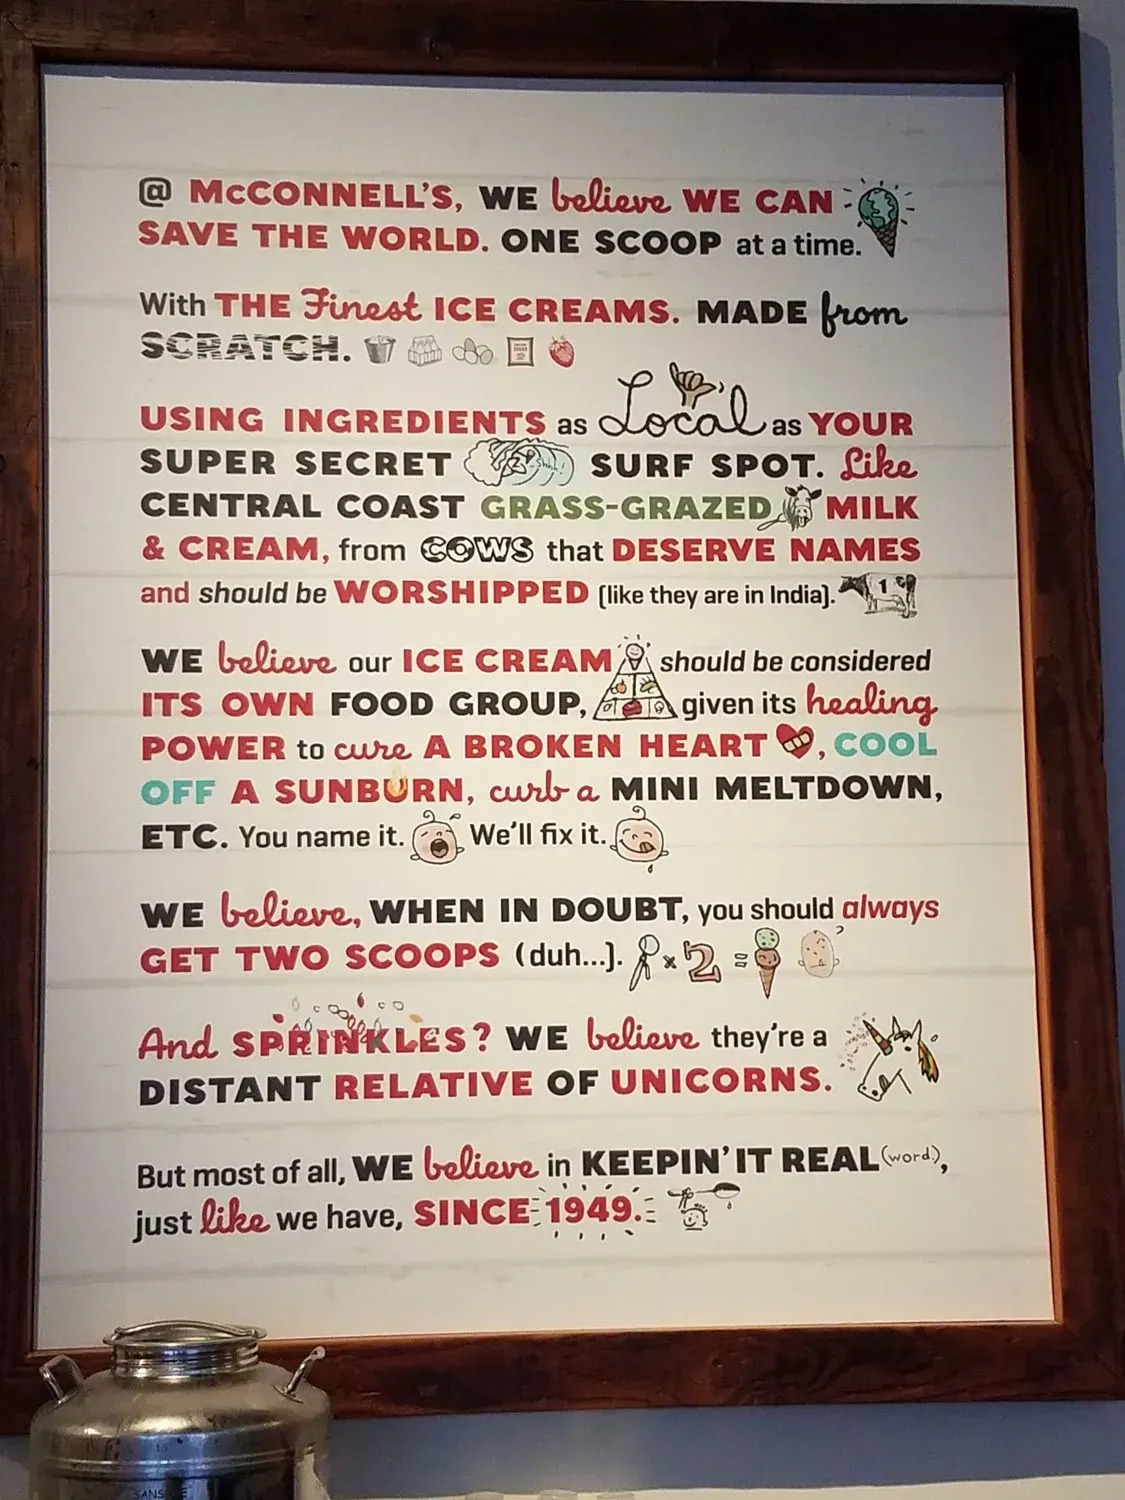 @ McCONNELL'S, WE believe WE CAN
SAVE THE WORLD. ONE SCOOP at a time.
With THE Finest ICE CREAMS. MADE from
SCRATCH.
USING INGREDIENTS as Local as YOUR
SUPER SECRET Shhh! SURF SPOT. Like
CENTRAL COAST GRASS-GRAZED MILK
& CREAM, from COWS that DESERVE NAMES
and should be WORSHIPPED (like they are in India).
1
WE believe our ICE CREAM should be considered
ITS OWN FOOD GROUP, given its healing
POWER to cure A BROKEN HEART, COOL
OFF A SUNBURN, curb a MINI MELTDOWN,
ETC. You name it. We'll fix it.
WE believe, WHEN IN DOUBT, you should always
GET TWO SCOOPS (duh...). x 2 =
And SPRINKLES? WE believe they're a
DISTANT RELATIVE OF UNICORNS.
But most of all, WE believe in KEEPIN' IT REAL (word.),
just like we have, SINCE 1949.